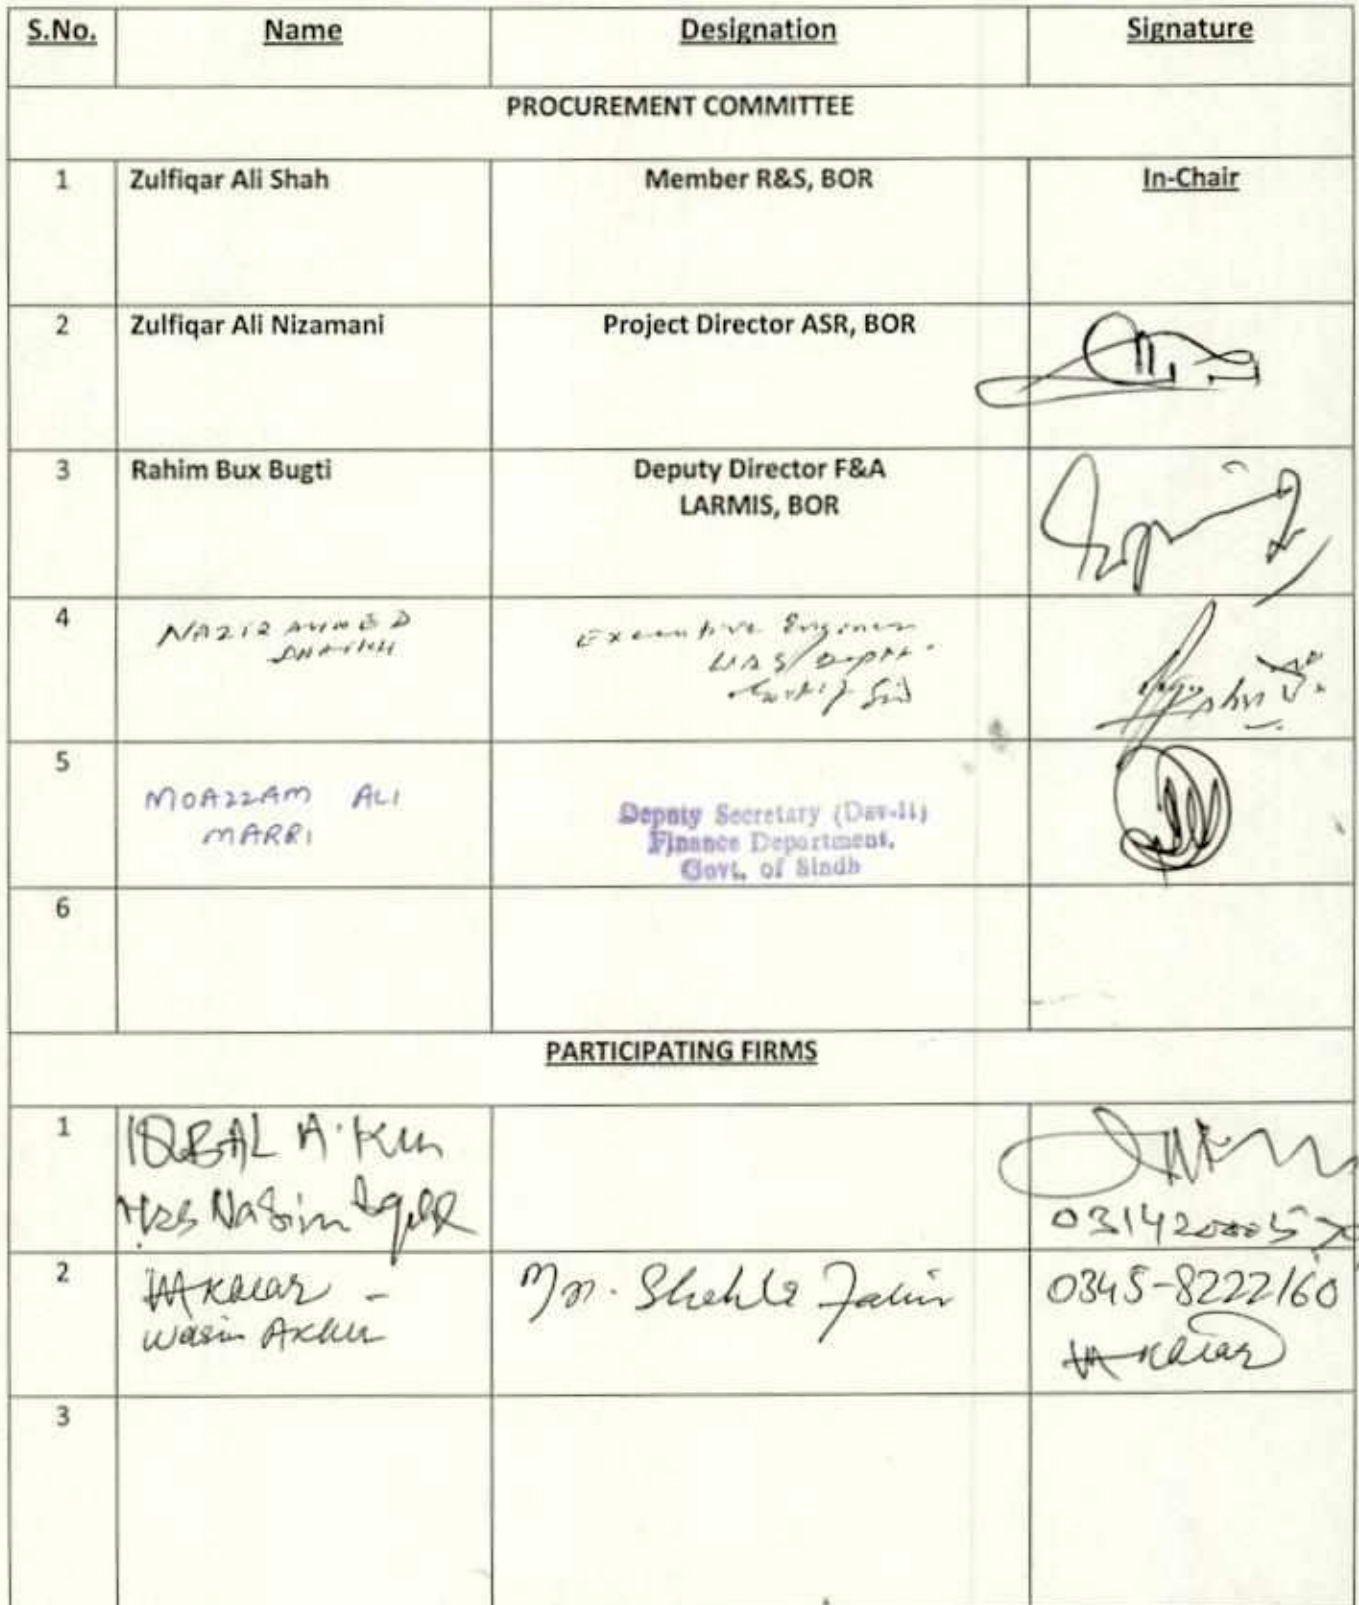 S.No. Name Designation Signature
PROCUREMENT COMMITTEE
1 Zulfiqar Ali Shah Member R&S, BOR In-Chair
2 Zulfiqar Ali Nizamani Project Director ASR, BOR
3 Rahim Bux Bugti Deputy Director F&A
LARMIS, BOR
4 NAZIR AHMED Executive Engineer
SHAIKH Deptt.
5
MOAZZAM ALI Deputy Secretary (Dev-II)
MARRI Finance Department,
Govt. of Sindh
6
PARTICIPATING FIRMS
1 IQBAL A.
Nasim
2 Shehla 0345-8222160
Wasim
3